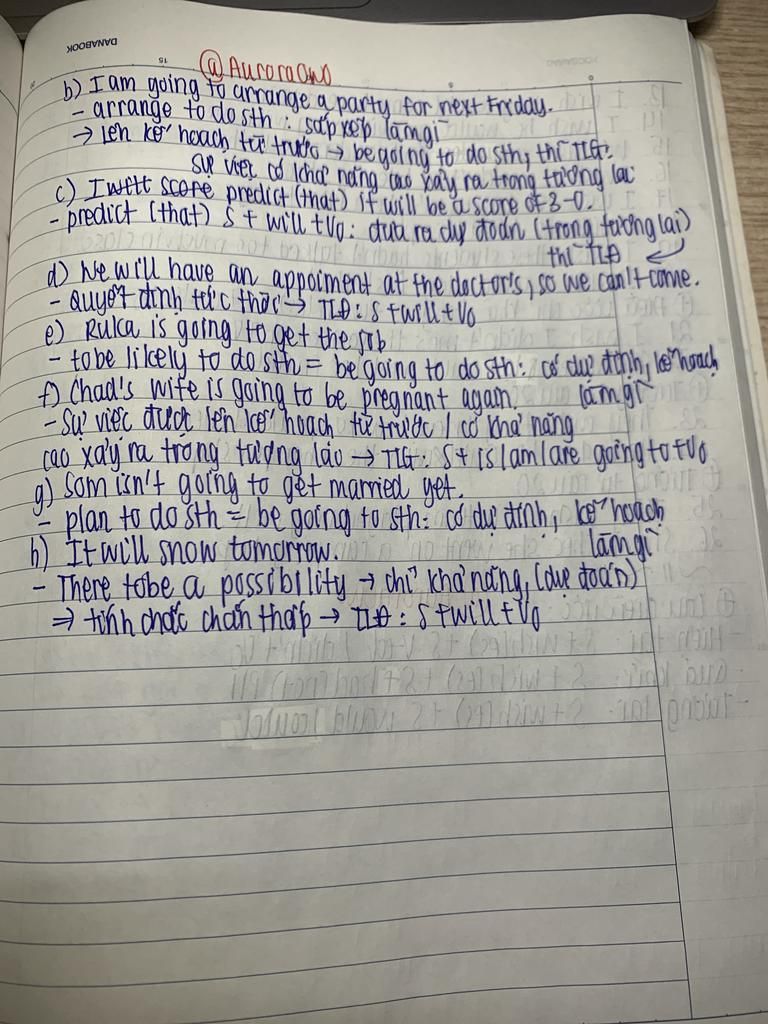 DANABOOK
15
@AuroraOwO
b) I am going to arrange a party for next Friday.
- arrange to do sth : sắp xếp làm gì
→ Lên kế hoạch từ trước → be going to do sth, thì TLG.
sự việc có khả năng cao xảy ra trong tương lai
c) I wett score predict (that) it will be a score of 3-0.
- predict (that) S + will + Vo : đưa ra dự đoán (trong tương lai)
thì TLĐ ↙
d) We will have an appoiment at the doctor's, so we can't come.
- Quyết định tức thời → TLĐ : S + will + Vo
e) Ruka is going to get the job
- tobe likely to do sth = be going to do sth : có dự định, kế hoạch
làm gì
f) Chad's wife is going to be pregnant again.
- Sự việc được lên kế hoạch từ trước / có khả năng
cao xảy ra trong tương lao → TLG : S + is / am / are going to + Vo
g) Som isn't going to get married yet.
- plan to do sth = be going to sth : có dự định, kế hoạch
làm gì
h) It will snow tomorrow.
- There tobe a possibility → chỉ khả năng, (dự đoán)
⇒ tính chất chắn thấp → TLĐ : S + will + Vo